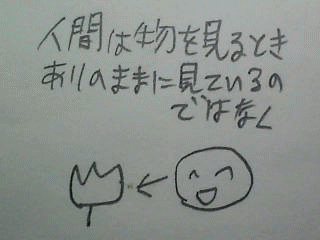 人間は物を見るとき
ありのままに見ているの
ではなく